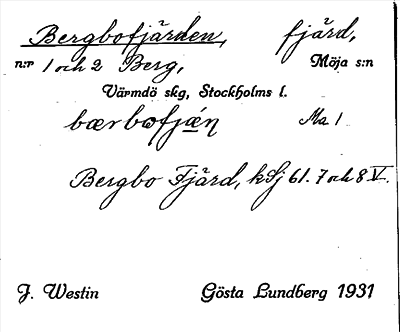 Bergbofjärden, fjärd,
n:r 1 och 2 Berg, Möja s:n
Värmdö skg, Stockholms l.
bærbωfjǽn Ma 1
Bergbo Fjärd, kSj 61. 7 och 8 V.
J. Westin Gösta Lundberg 1931